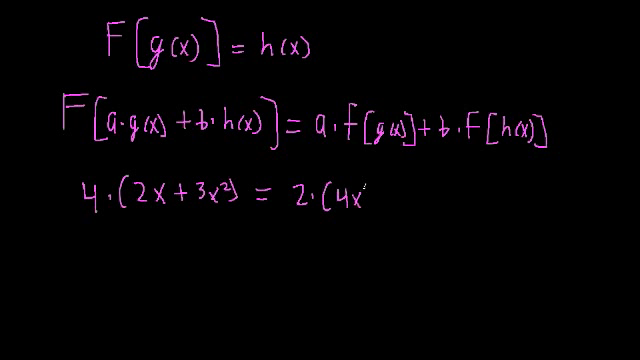 F[g(x)] = h(x)
F[a·g(x) + b·h(x)] = a·f[g(x)] + b·F[h(x)]
4·(2x + 3x²) = 2·(4x